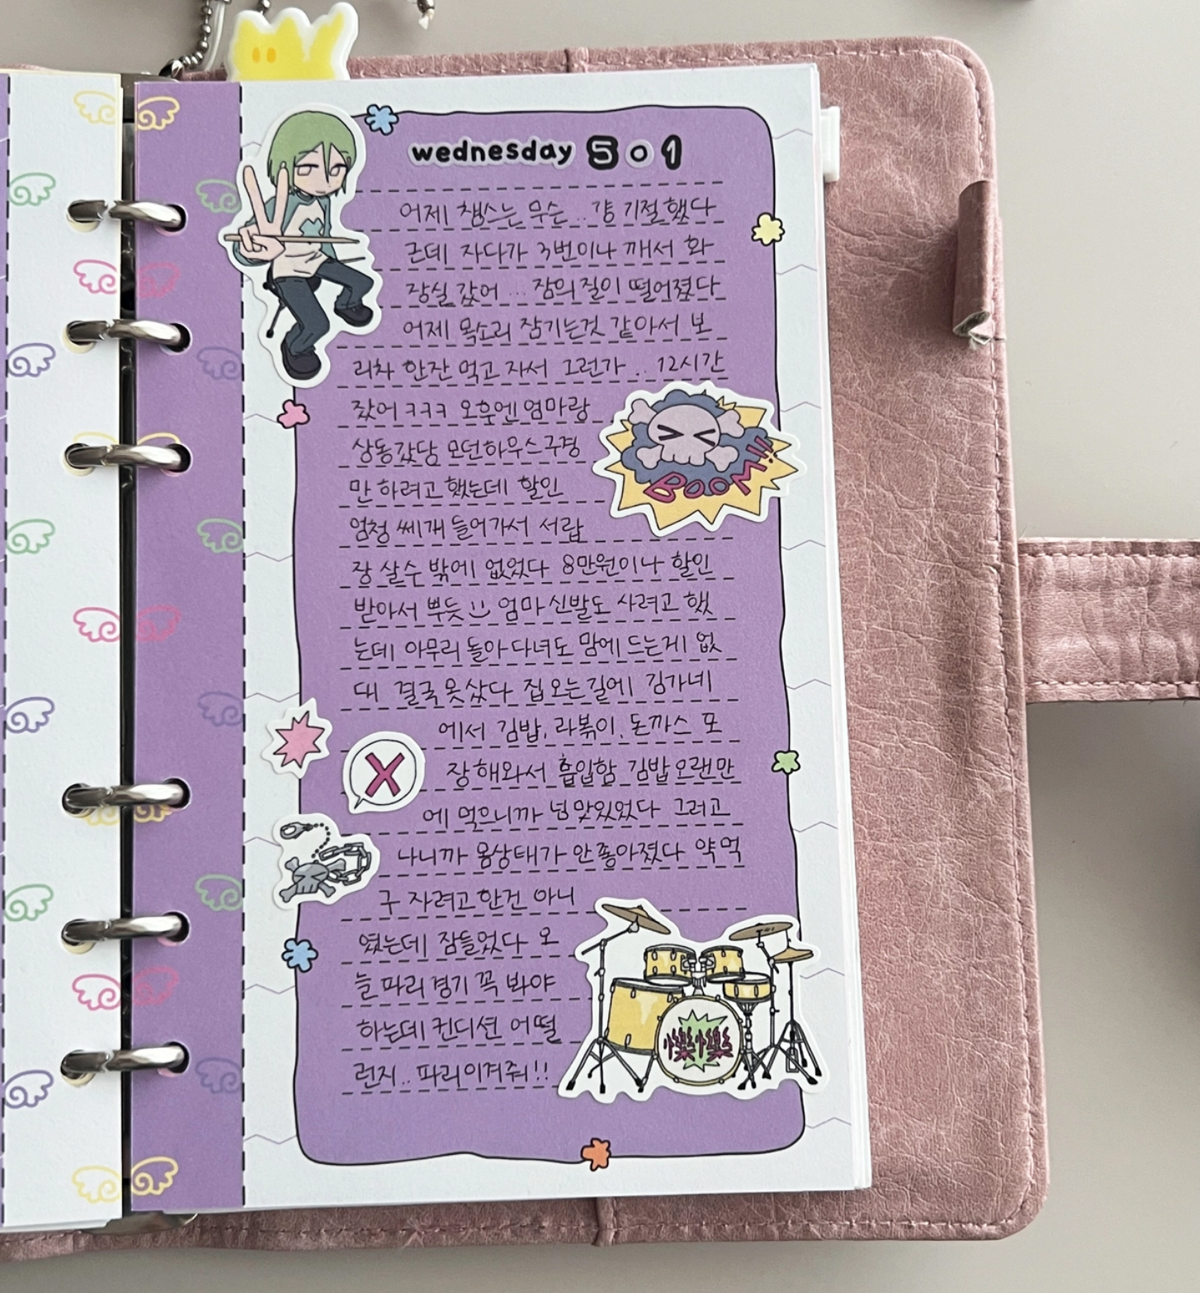 wednesday 5 0 1
어제 챔스는 무슨.. 걍 기절했다
근데 자다가 3번이나 깨서 화
장실 갔어 ... 잠의 질이 떨어졌다
어제 목소리 잠기는것 같아서 보
리차 한잔 먹고 자서 그런가.. 12시간
잤어 ㅋㅋㅋ 오후엔 엄마랑
상동갔당 모던하우스구경
만 하려고 했는데 할인
엄청 쎄게 들어가서 서랍
장 살수 밖에 없었다 8만원이나 할인
받아서 뿌듯 :) 엄마 신발도 사려고 했
는데 아무리 돌아다녀도 맘에 드는게 없
대 결국 못샀다 집 오는길에 김가네
에서 김밥, 라볶이, 돈까스 포
장해와서 흡입함 김밥 오랜만
에 먹으니까 넘 맛있었다 그러고
나니까 몸상태가 안좋아졌다 약먹
구 자려고 한건 아니
였는데 잠들었다 오
늘 파리 경기 꼭 봐야
하는데 컨디션 어떨
런지.. 파리 이겨줘!!
BOOM!!!
X